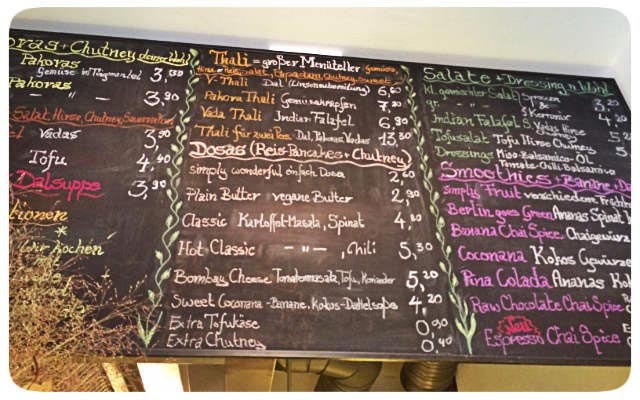 Pakoras + Chutney deiner Wahl
Pakoras
Gemüse im Teigmantel 3,50
Pakoras
" — " 3,90
Salat, Hirse, Chutney,
Vadas 3,90
Tofu 4,40
Dalsupps 3,90
tionen
Wir kochen
Thali = großer Menüteller
Hirse
Salat, Papadam, Chutney, Sweet
V-Thali Dal 6,60
Pakora Thali Gemüsekrapfen
Vada Thali Indian Falafel 6,90
Thali für zwei Pers. Dal, Pakoras, Vadas 13,80
Dosas (Reis-Pancakes + Chutney)
simply wonderful einfach Dosa
Plain Butter vegane Butter 2,90
Classic Kartoffel-Masala, Spinat
Hot Classic — " —, Chili 5,30
Bombay Cheese Tomatenmasala, Tofu, Koriander 5,20
Sweet Coconana - Banane, Kokos-Dattelsoße 4,20
Extra Tofukäse 0,90
Extra Chutney 0,40
Salate + Dressing n. Wahl
kl. gemischter Salat Spitzen 3,20
gr. — " — 4,20
Indian Falafel S. Vadas Hirse
Tofusalat Tofu Hirse Chutney
Dressings Miso-Balsamico-Öl
Tomate-Chili Balsamico
Smoothies = Banane, Da
simply Fruit verschiedene
Berlin goes Green Ananas Spinat
Banana Chai Spice Chaigewürz
Coconana Kokos Gewürze
Pina Colada Ananas Kok
Raw Chocolate Chai Spice
Neu
Espresso Chai Spice